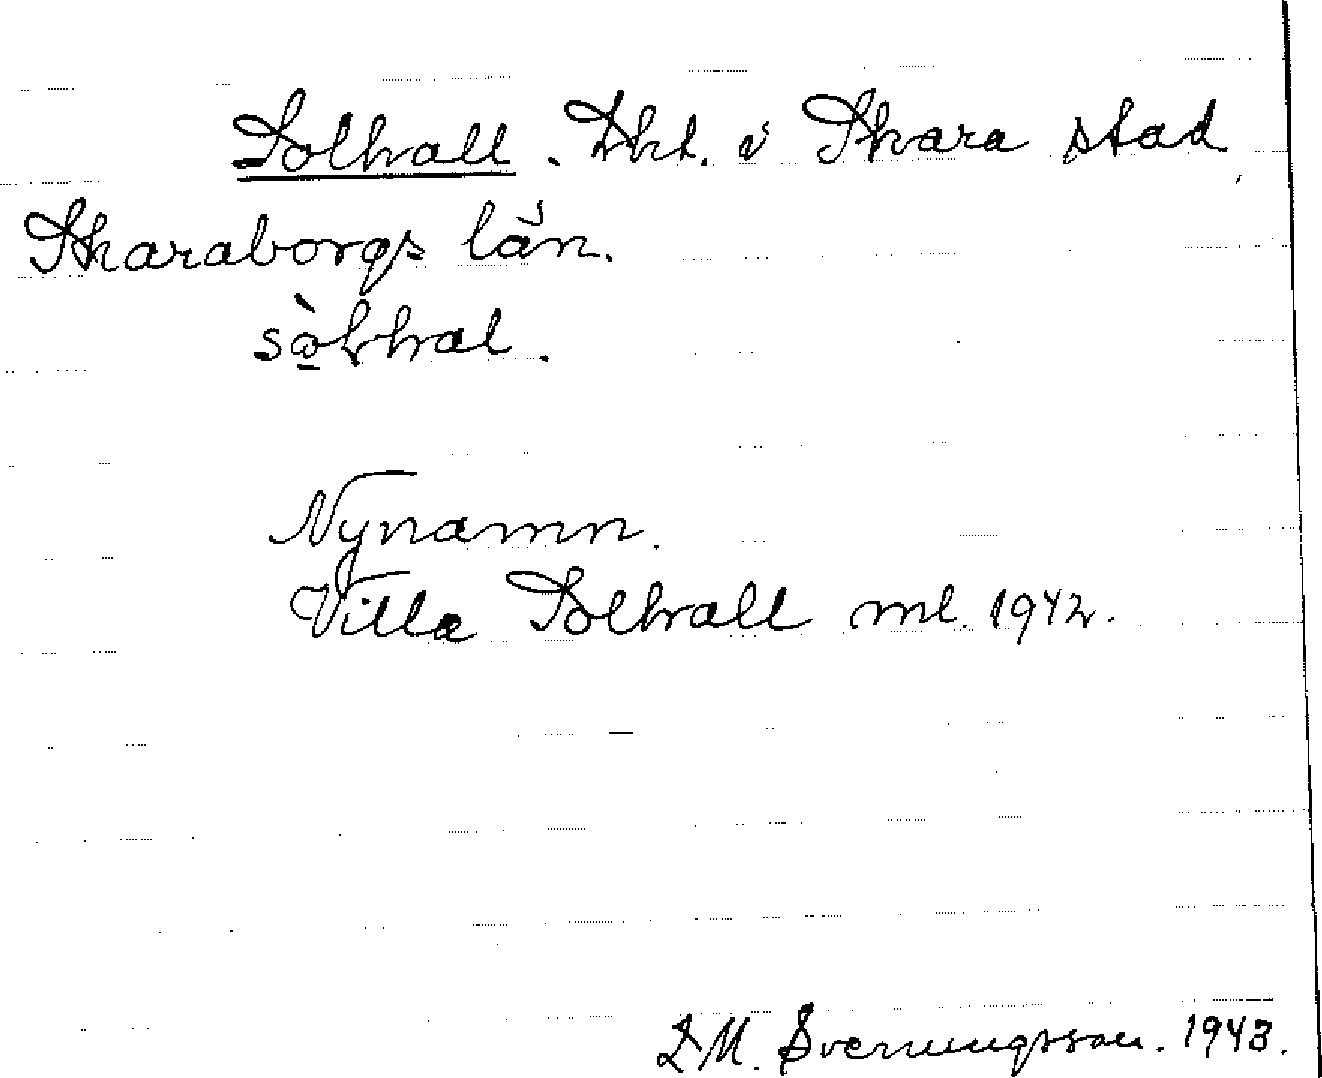 Solhall. Lht. i Skara stad,
Skaraborgs län.
sòlhal.
Nynamn.
Villa Solhall ml. 1942.
D.M. Svenungsson. 1943.